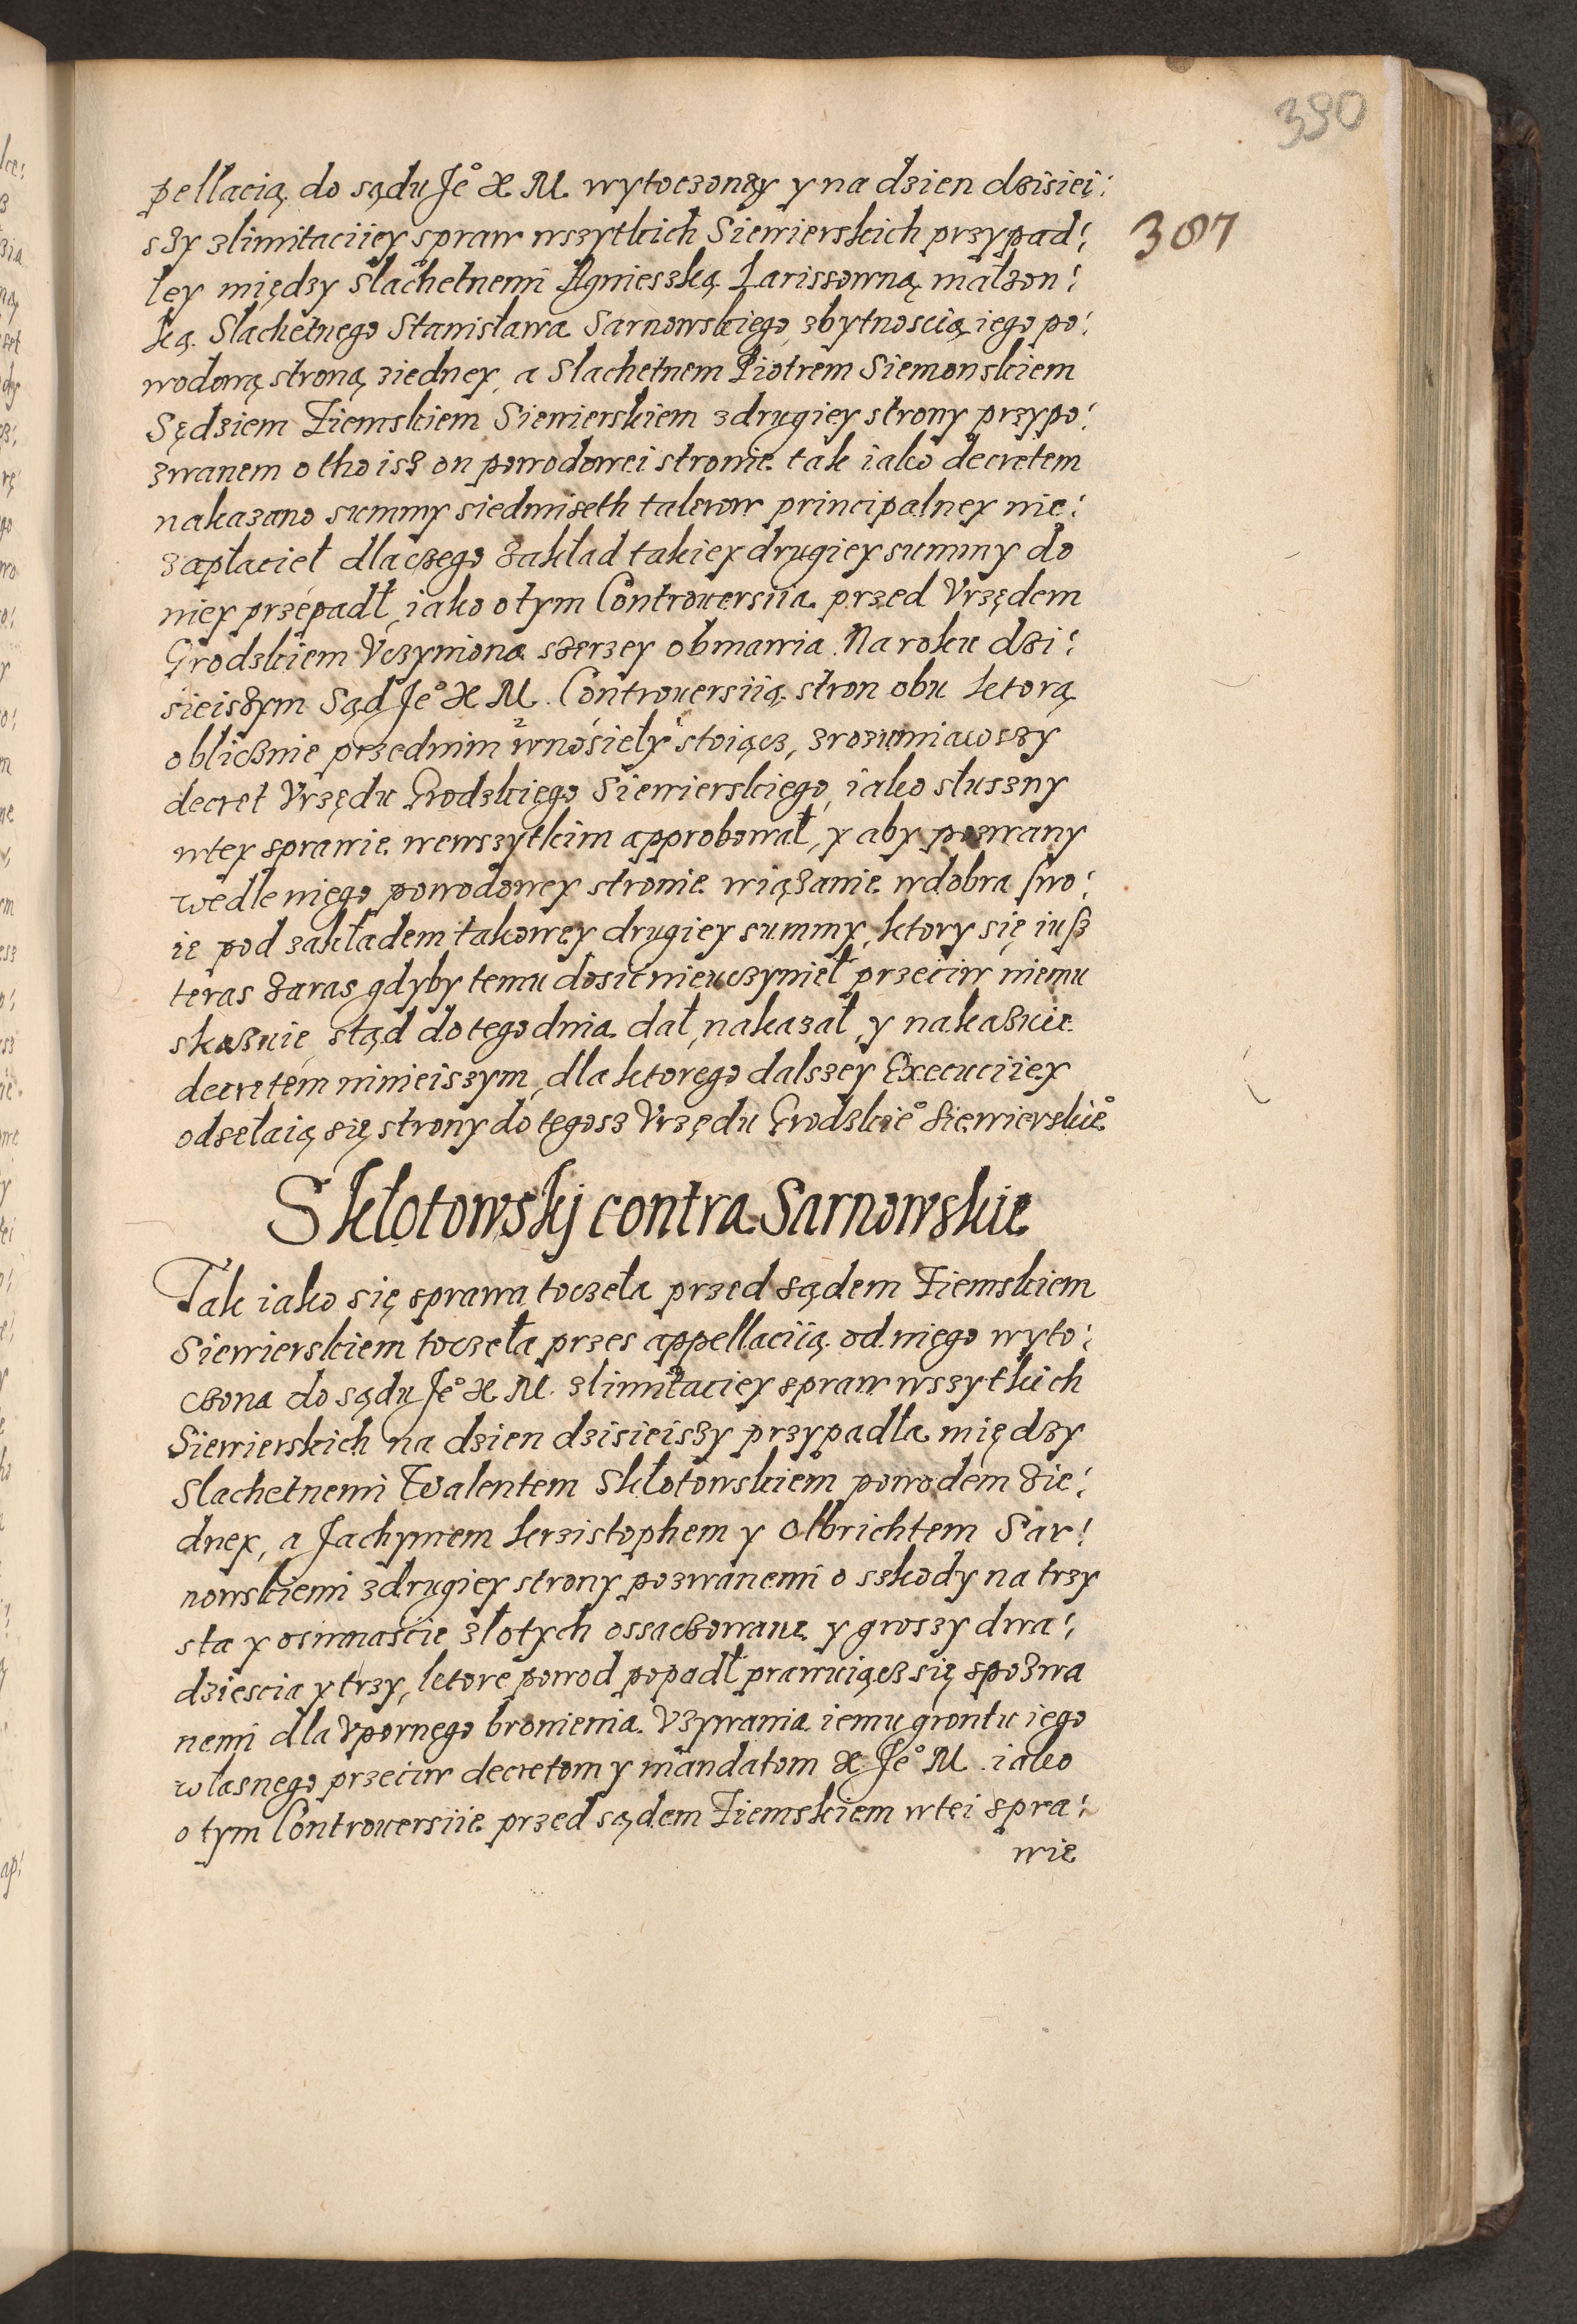 390
387
pellacią do sądu Je° X M wytoczonęy y na dzien dzisiei:
szy z limitaciiey spraw wszytkich Siewierskich przypad:
łey między Slachetnemi Agnieszką Larissowną małzon:
ką Slachetnego Stanisława Sarnowskiego, zbytnoscią iego po:
wodową stroną ziedney, a Slachetnem Piotrem Siemonskiem
Sędziem Ziemskiem Siewierskiem z drugiey strony przypo:
zwanem o tho isz on powodowei stronie tak iako decretem
nakazano summy siedmiseth talerow principalney nie:
zapłacieł dla czego zakład takiey drugiey summy do
niey przepadł, iako o tym Controuersiia przed Vrzędem
Grodzkiem Vczyniona szerzey obmawia. Na roku dzi:
sieiszym Sąd Je° X M. Controuersiią stron obu ktorą
oblicznie przednim wnosieły stoiącz, zrozumiawszy
decret Vrzędu Grodzkięgo Siewierskiego, iako słuszny
wtey sprawie wewszytkim approbował, y aby pozwany
wedle niego powodowey stronie wiązanie w dobra swo:
ie pod zakładem takowey drugiey summy, ktory się iusz
teras zaras gdyby temu dosic nieuczynieł przeciw niemu
skazuie, stąd do tego dnia dał, nakazał, y nakazuie
decretem ninieiszym, dla ktorego dalszey Execuciiey
odsełaią się strony do tegosz Vrzędu Grodzkie° Siewierskie°
Skłotowskj contra Sarnowskie
Tak iako się sprawa toczeła przed sądem Ziemskiem
Siewierskiem toczeła przes appellaciią od niego wyto:
czona do sądu Je° X M. z limitaciey spraw wszytkich
Siewierskich na dzien dzisieiszy przypadła między
Slachetnemi Walentem Skłotowskiem powodem zie:
dney, a Jachymem krzistophem y Olbrichtem Sar:
nowskiemi z drugiey strony pozwanemi o szkody na trzy
sta y osmnascie złotych ossaczowane y groszy dwa:
dziescia y trzy, ktore powod popadł prawuiącz się spozwa
nemi dla Vpornęgo bronienia Vzywania iemu grontu iego
własnego przeciw decretom y mandatom X Je° M. iako
o tym Controuersiie przed sądem Ziemskiem wtei spra:
wie